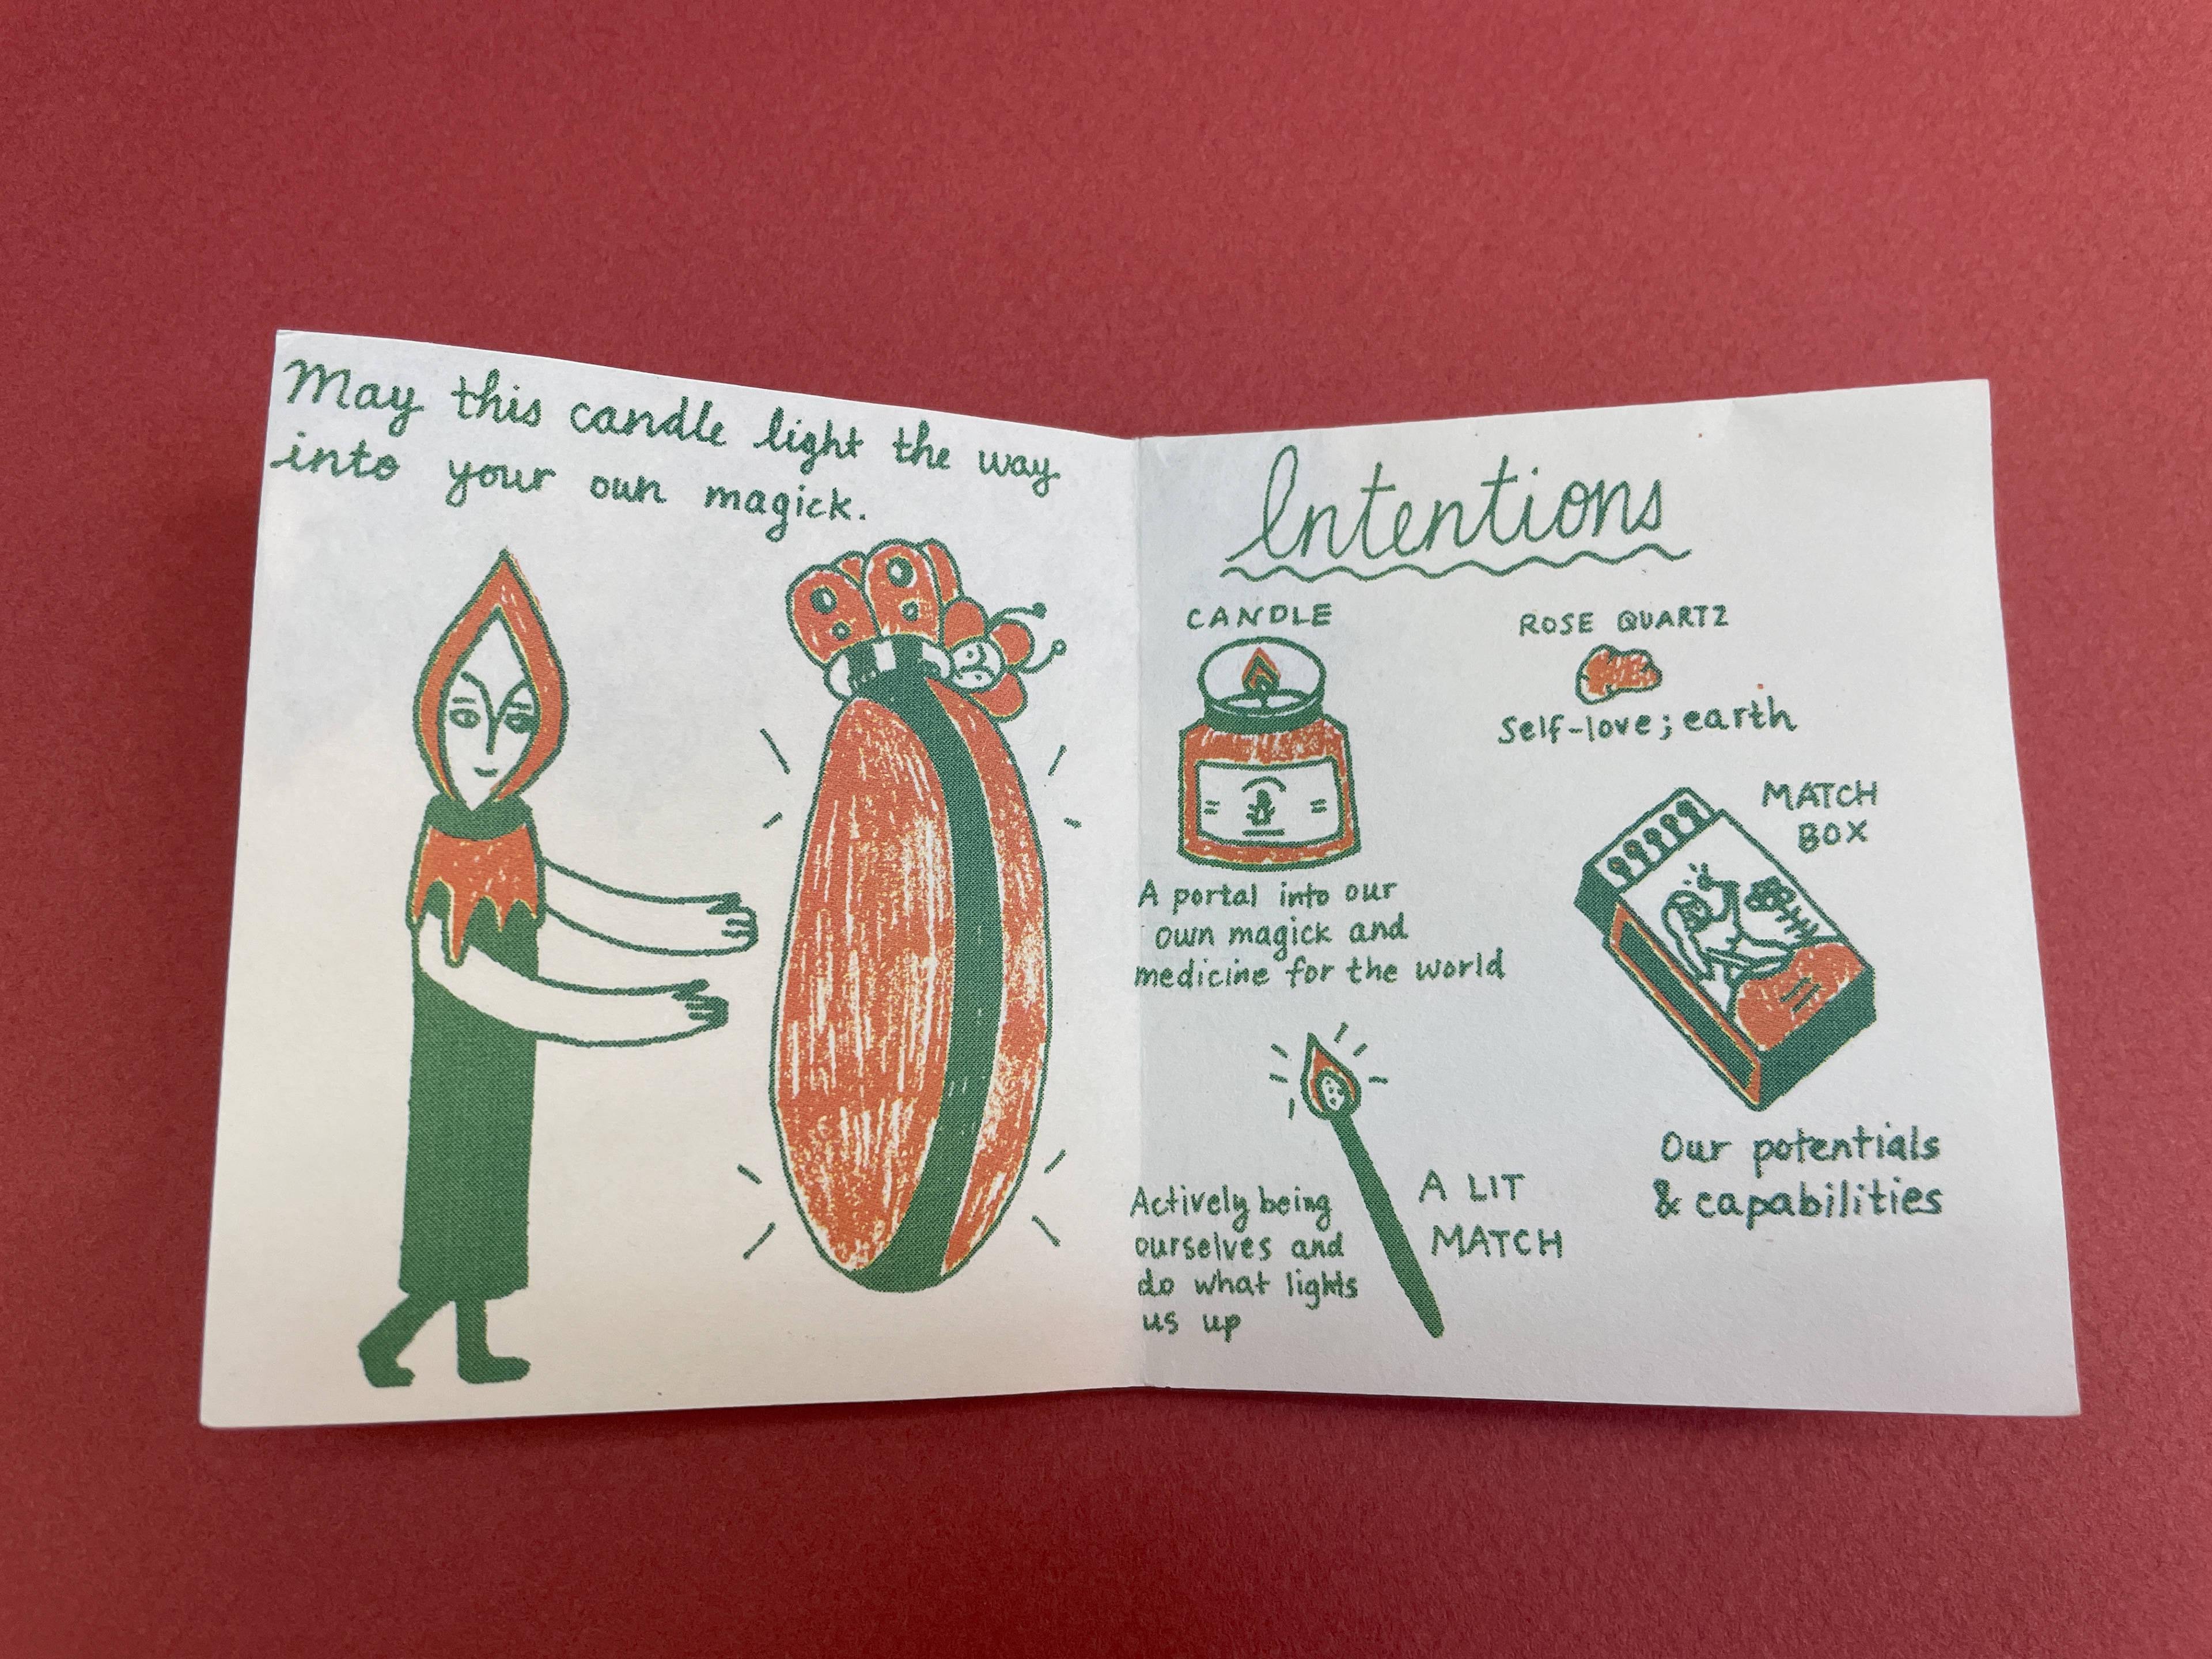 May this candle light the way
into your own magick.
Intentions
CANDLE
A portal into our
own magick and
medicine for the world
ROSE QUARTZ
Self-love; earth
MATCH
BOX
Our potentials
& capabilities
A LIT
MATCH
Actively being
ourselves and
do what lights
us up